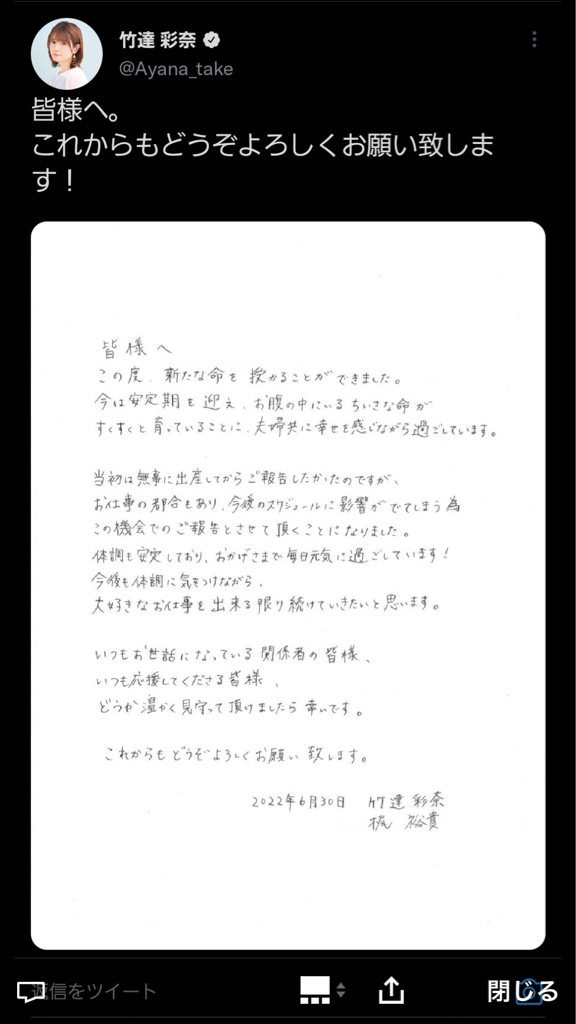 竹達 彩奈
@Ayana_take
皆様へ。
これからもどうぞよろしくお願い致しま
す！
皆様へ
この度、新たな命を授かることができました。
今は安定期も迎え、お腹の中にいるちいさな命が
すくすくと育っていることに、夫婦共に幸せを感じながら過ごしています。
当初は無事に出産してからご報告したかったのですが、
お仕事の都合もあり、今後のスケジュールに影響がでてしまう為
この機会でのご報告とさせて頂くことになりました。
体調も安定しており、おかげさまで毎日元気に過ごしています！
今後も体調に気をつけながら、
大好きなお仕事を出来る限り続けていきたいと思います。
いつもお世話になっている関係者の皆様、
いつも応援してくださる皆様、
どうか温かく見守って頂けましたら幸いです。
これからもどうぞよろしくお願い致します。
2022年6月30日 竹達 彩奈
梶 裕貴
返信をツイート
閉じる